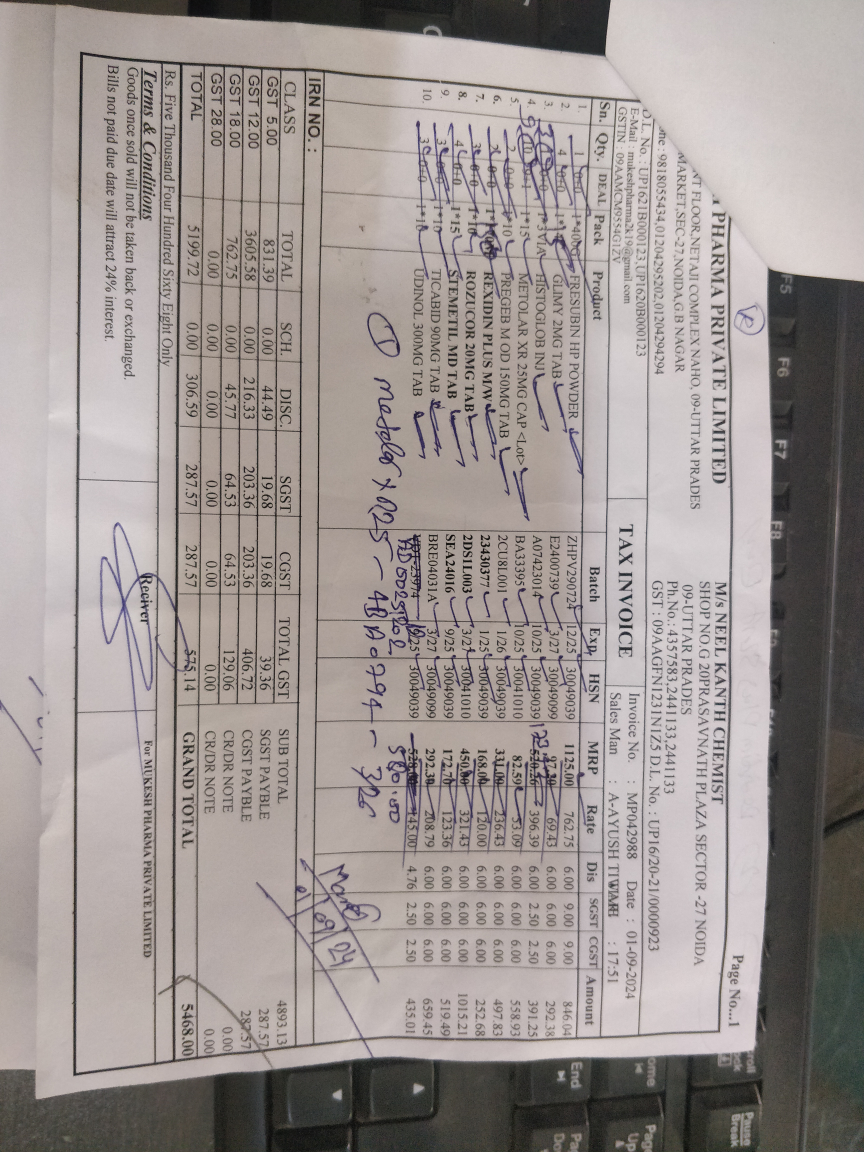 PHARMA PRIVATE LIMITED
NT FLOOR,NETAJI COMPLEX NAHO, 09-UTTAR PRADES
MARKET,SEC-27,NOIDA,G.B NAGAR
one : 9818055434,01204295202,01204294294
D.L. No. : UP1621B000123,UP1620B000123
E-Mail : mukeshpharma2k19@gmail.com
GSTIN : 09AAMCM9554G1ZV
Page No...1
M/s NEEL KANTH CHEMIST
SHOP NO.G 20PRASAVNATH PLAZA SECTOR -27 NOIDA
09-UTTAR PRADES
Ph.No.: 4357583,2441133,2441133
GST : 09AAGFN1231N1Z5 D.L. No. : UP16/20-21/0000923
TAX INVOICE
Invoice No. : MP042988 Date : 01-09-2024
Sales Man : A-AYUSH : 17:51
Sn. Qty. DEAL Pack Product Batch Exp HSN MRP Rate Dis SGST CGST Amount
1. 1 0+0 FRESUBIN HP POWDER ZHPV290724 12/25 30049039 1125.00 762.75 6.00 9.00 9.00 846.04
2. 4 0+0 GLIMY 2MG TAB E2400739 3/27 30049099 69.43 6.00 6.00 6.00 292.38
3. HISTOGLOB INJ A07423014 10/25 30049039 396.39 6.00 2.50 2.50 391.25
4. 1*15 METOLAR XR 25MG CAP <Lot> BA33395 10/25 30041010 82.59 53.09 6.00 6.00 6.00 558.93
5. 2 0+0 1*10 PREGEB M OD 150MG TAB 2CU8L001 1/26 30049039 331.00 236.43 6.00 6.00 6.00 497.83
6. REXIDIN PLUS M/W 23430377 1/25 30049039 168.00 120.00 6.00 6.00 6.00 252.68
7. 3 0+0 1*10 ROZUCOR 20MG TAB 2DS1L003 3/27 30041010 450.00 321.43 6.00 6.00 6.00 1015.21
8. 4 0+0 1*15 STEMETIL MD TAB SEA24016 9/25 30049039 172.70 123.36 6.00 6.00 6.00 519.49
9. 3 0+0 1*10 TICABID 90MG TAB BRE04031A 3/27 30049099 292.30 208.79 6.00 6.00 6.00 659.45
10. 3 0+0 1*10 UDINOL 300MG TAB 30049039 145.00 4.76 2.50 2.50 435.01
① metolar XR 25 - ABA0794 - 3/26
01/09/24
IRN NO. :
CLASS TOTAL SCH. DISC. SGST CGST TOTAL GST
GST 5.00 831.39 0.00 44.49 19.68 19.68 39.36
GST 12.00 3605.58 0.00 216.33 203.36 203.36 406.72
GST 18.00 762.75 0.00 45.77 64.53 64.53 129.06
GST 28.00 0.00 0.00 0.00 0.00 0.00 0.00
TOTAL 5199.72 0.00 306.59 287.57 287.57 575.14
SUB TOTAL 4893.13
SGST PAYBLE 287.57
CGST PAYBLE 287.57
CR/DR NOTE 0.00
CR/DR NOTE 0.00
GRAND TOTAL 5468.00
Rs. Five Thousand Four Hundred Sixty Eight Only
Terms & Conditions
Goods once sold will not be taken back or exchanged.
Bills not paid due date will attract 24% interest.
Reciver
For MUKESH PHARMA PRIVATE LIMITED
F5
F6
F7
F8
End
Pause
Break